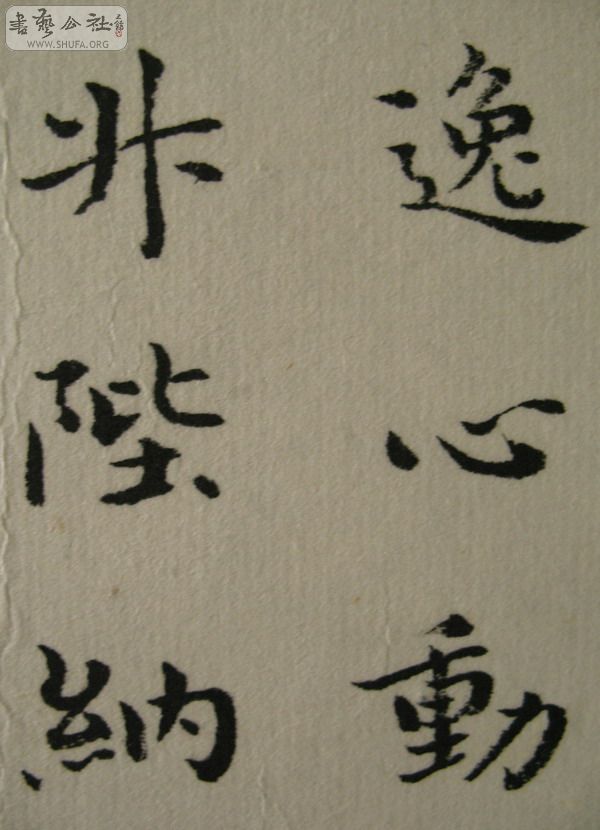 書藝公社
WWW.SHUFA.ORG
逸心動
升陛納